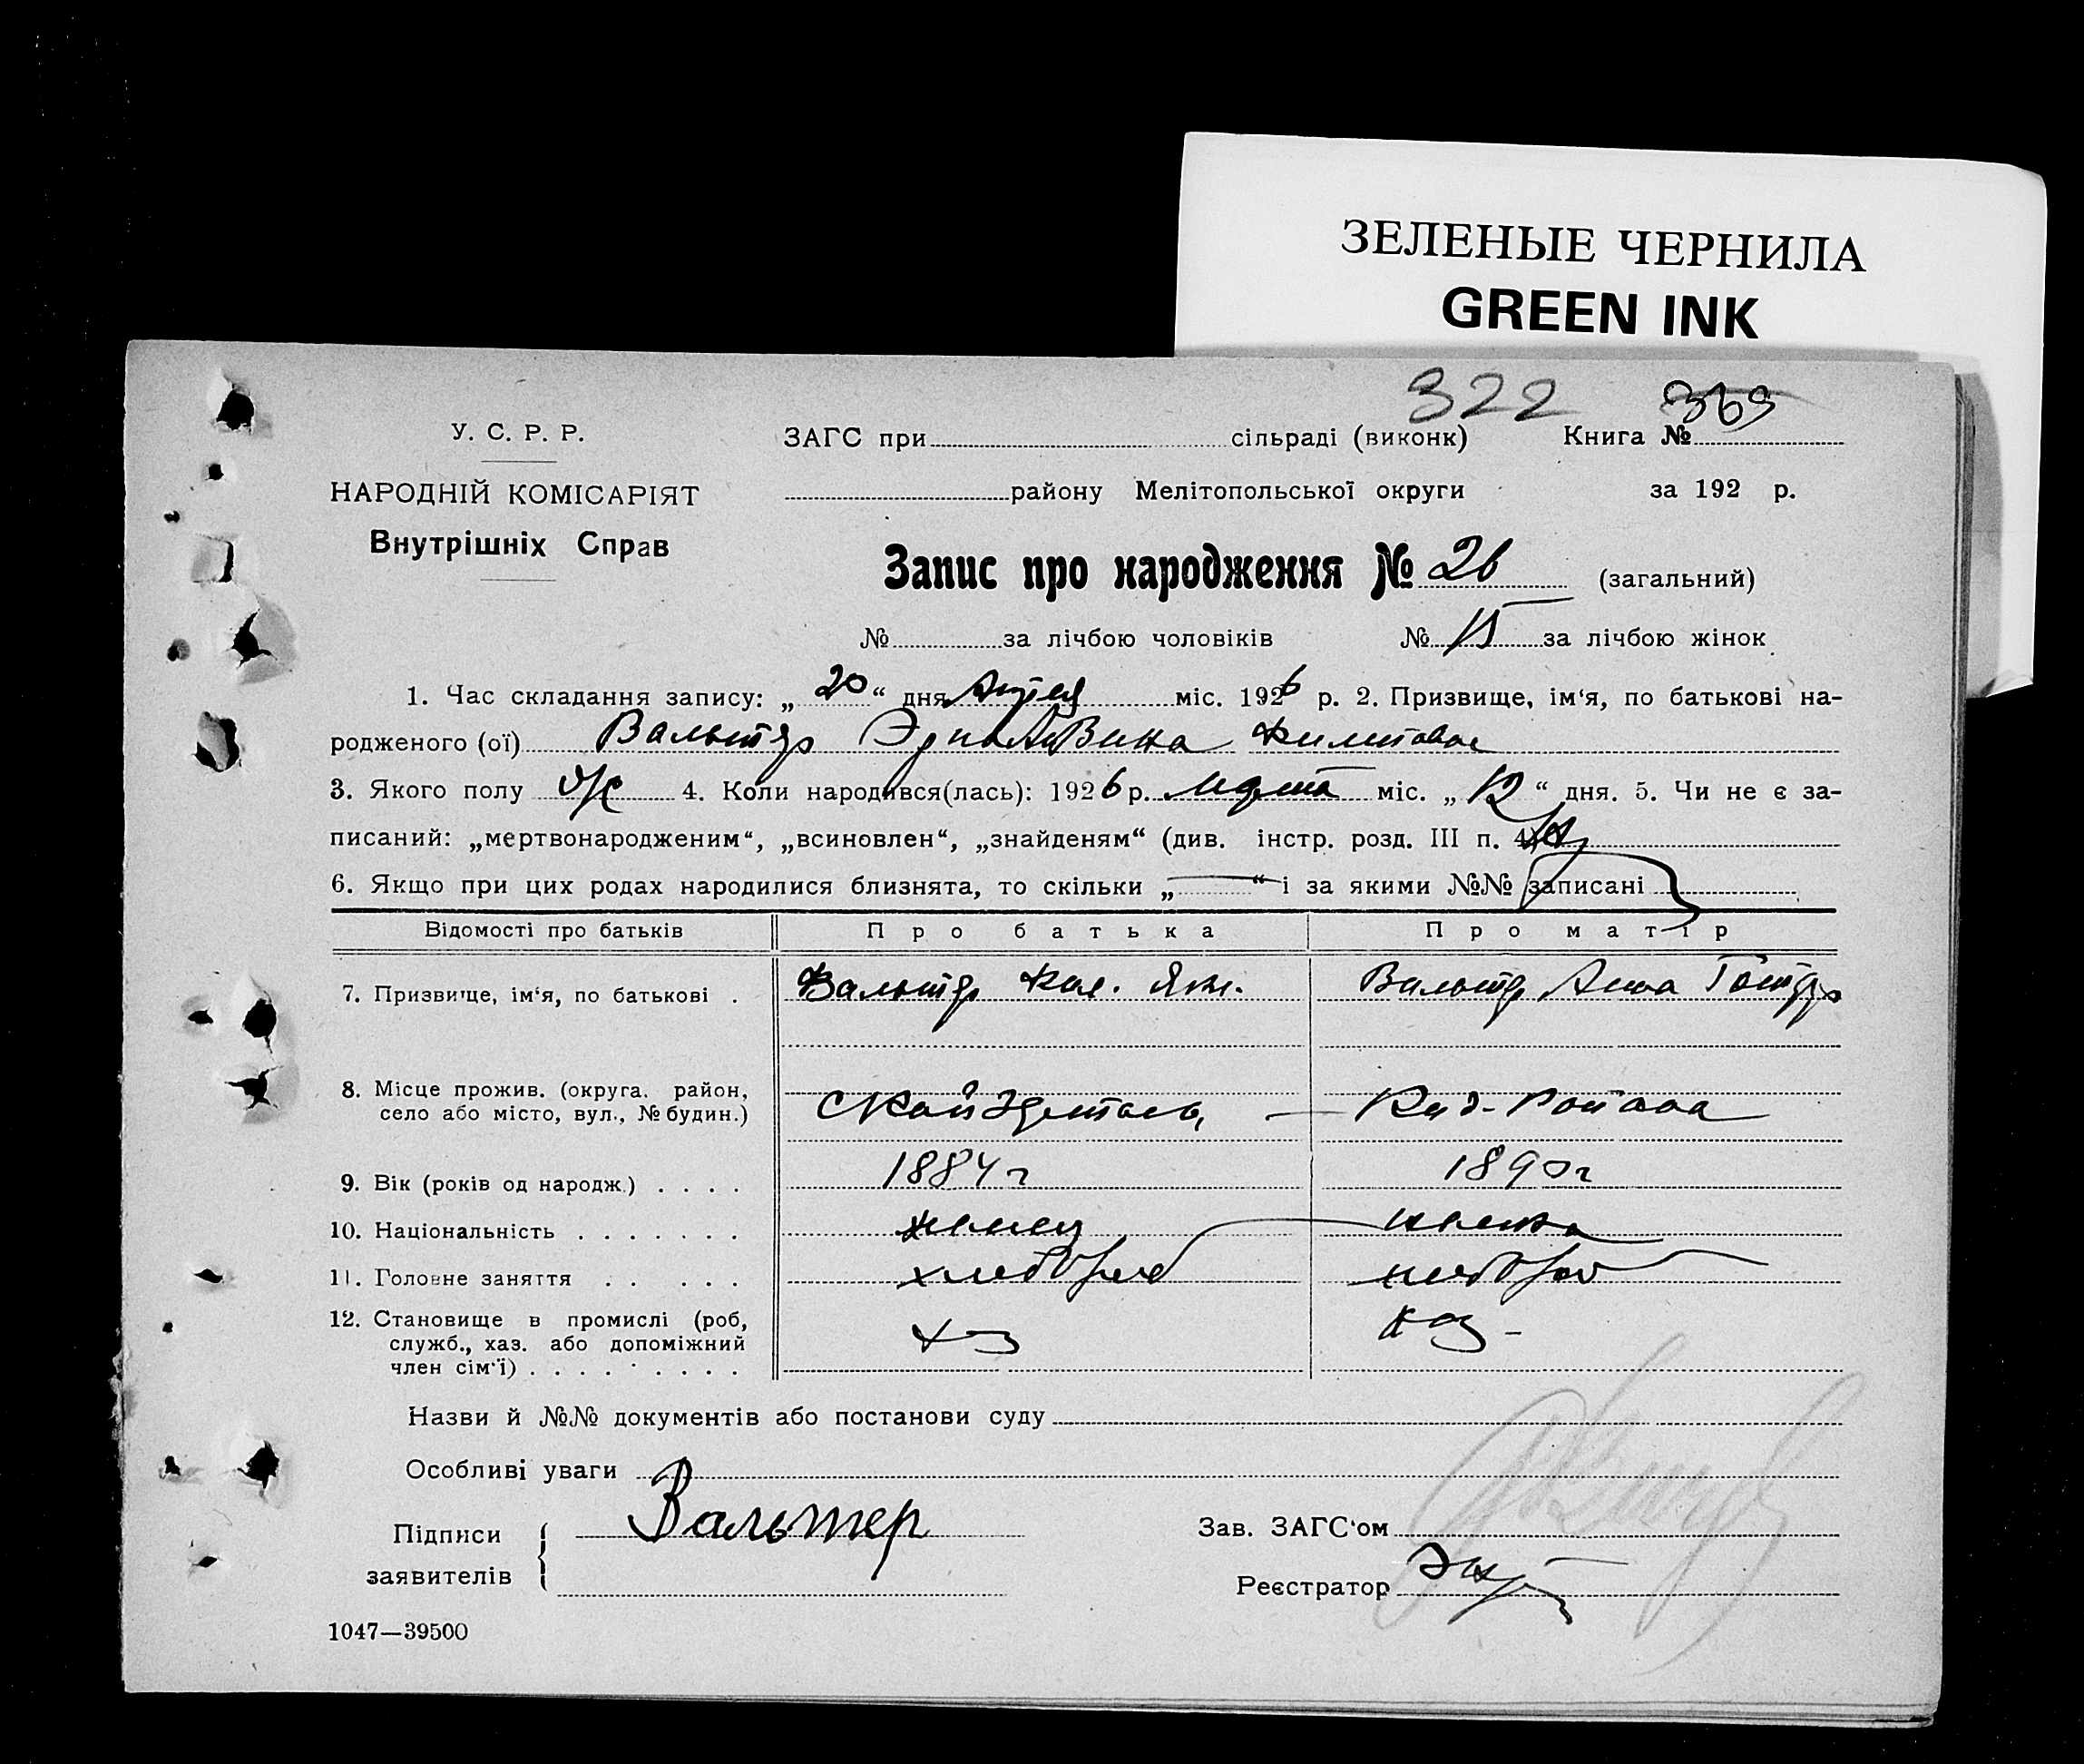 ЗЕЛЕНЫЕ ЧЕРНИЛА
GREEN INK
322 369
У. С. Р. Р. ЗАГС при сільраді (виконк) Книга №
НАРОДНІЙ КОМІСАРІЯТ району Мелітопольської округи за 192 р.
Внутрішніх Справ
Запис про народження № 26 (загальний)
№ за лічбою чоловіків № 15 за лічбою жінок
1. Час складання запису: „ 20 “ дня міс. 1926 р. 2. Призвище, ім‘я, по батькові на-
родженого (ої) Вальтер
3. Якого полу ж 4. Коли народився(лась): 1926 р. марта міс. „ 12 “ дня. 5. Чи не є за-
писаний: „мертвонародженим“, „всиновлен“, „знайденям“ (див. інстр. розд. III п. 4)
6. Якщо при цих родах народилися близнята, то скільки „ “ і за якими №№ записані
Відомості про батьків Про батька Про матір
7. Призвище, ім‘я, по батькові . Вальтер Вальтер Анна
8. Місце прожив. (округа. район,
село або місто, вул., № будин.)
9. Вік (років од народж.) . . . . 1884 г 1890 г
10. Національність . . . . . . . немец немка
11. Головне заняття . . . . .
12. Становище в промислі (роб,
служб., хаз. або допоміжний
член сім‘ї) . . . . . . . . .
Назви й №№ документів або постанови суду
Особливі уваги
Підписи Вальтер Зав. ЗАГС‘ом
заявителів Реєстратор
1047—39500